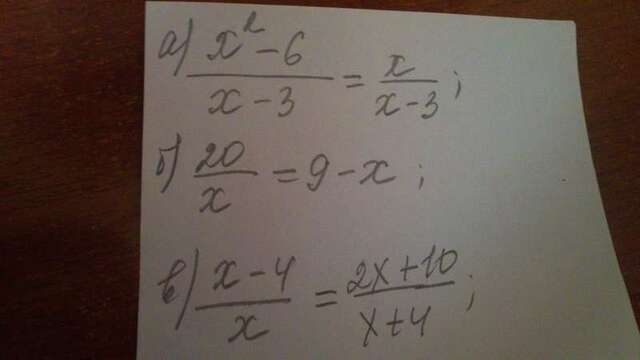 а) (x² - 6)/(x - 3) = x/(x - 3);
б) 20/x = 9 - x;
в) (x - 4)/x = (2x + 10)/(x + 4);